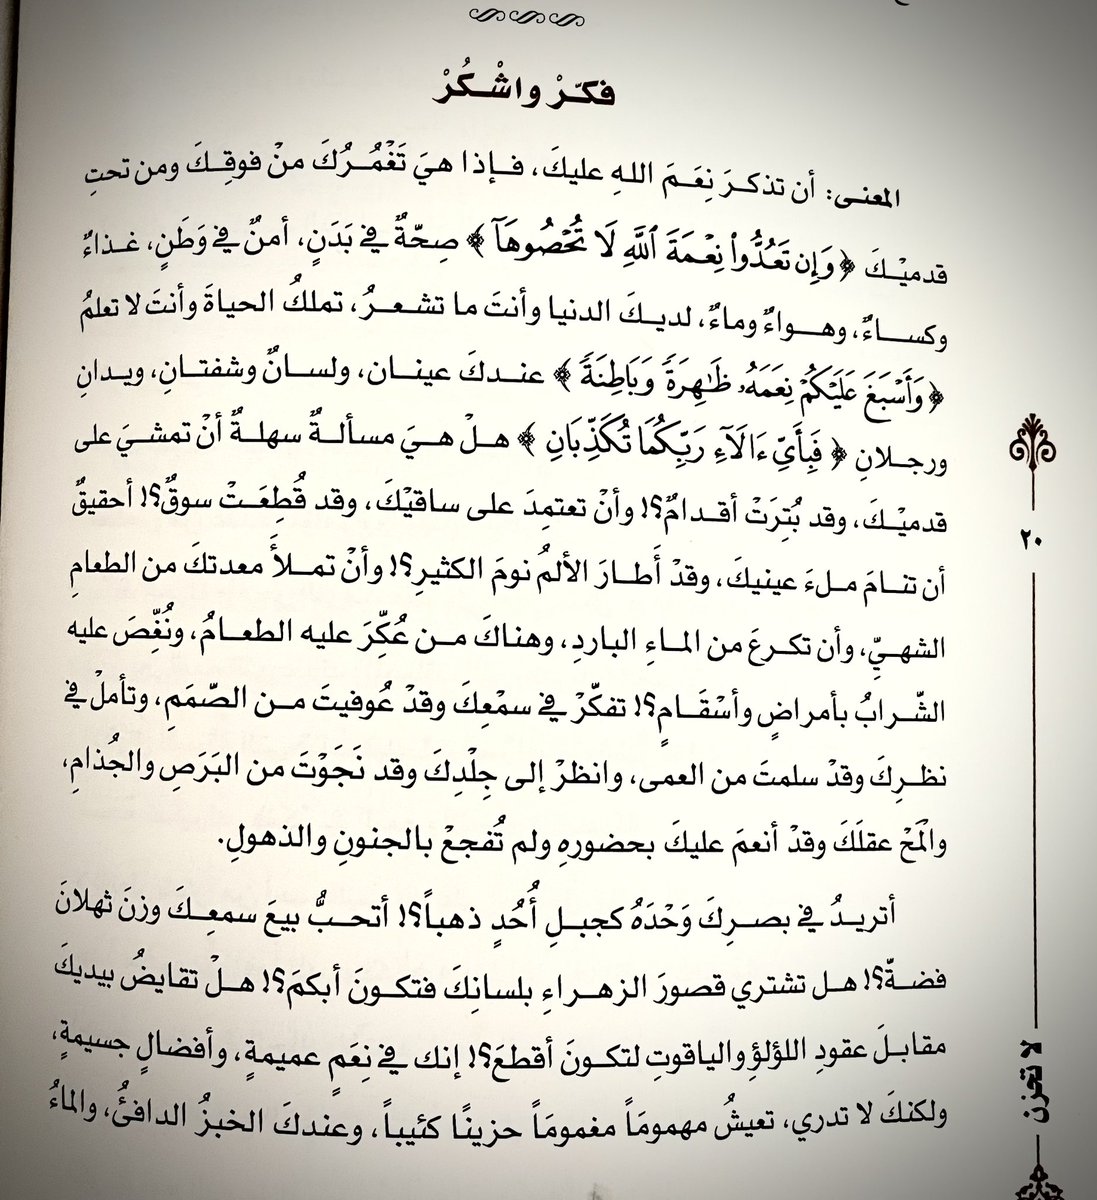 فكّرْ واشْكُرْ
المعنى: أن تذكرَ نِعَمَ اللهِ عليكَ، فإذا هيَ تَغْمُرُكَ منْ فوقِكَ ومن تحتِ
قدميْكَ ﴿وَإِن تَعُدُّواْ نِعْمَةَ ٱللَّهِ لَا تُحْصُوهَآ﴾ صِحّةٌ في بَدَنٍ، أمنٌ في وَطَنٍ، غذاءٌ
وكساءٌ، وهواءٌ وماءٌ، لديكَ الدنيا وأنتَ ما تشعرُ، تملكُ الحياةَ وأنتَ لا تعلمُ
﴿وَأَسْبَغَ عَلَيْكُمْ نِعَمَهُۥ ظَٰهِرَةً وَبَاطِنَةً﴾ عندكَ عينان، ولسانٌ وشفتانِ، ويدانِ
ورجلانِ ﴿فَبِأَيِّ ءَالَآءِ رَبِّكُمَا تُكَذِّبَانِ﴾ هلْ هيَ مسألةٌ سهلةٌ أنْ تمشيَ على
قدميْكَ، وقد بُتِرَتْ أقدامٌ؟! وأنْ تعتمِدَ على ساقيْكَ، وقد قُطِعَتْ سوقٌ؟! أحقيقٌ
أن تنامَ ملءَ عينيكَ، وقدْ أَطارَ الألمُ نومَ الكثيرِ؟! وأنْ تملأَ معدتكَ من الطعامِ
الشهيِّ، وأن تكرعَ من الماءِ الباردِ، وهناكَ من عُكِّرَ عليه الطعامُ، ونُغِّصَ عليه
الشّرابُ بأمراضٍ وأسْقَامٍ؟! تفكّرْ في سمْعِكَ وقدْ عُوفيتَ من الصّمَمِ، وتأملْ في
نظرِكَ وقدْ سلمتَ من العمى، وانظرْ إلى جِلْدِكَ وقد نَجَوْتَ من البَرَصِ والجُذامِ،
والْمَحْ عقلَكَ وقدْ أنعمَ عليكَ بحضورهِ ولم تُفجعْ بالجنونِ والذهولِ.
أتريدُ في بصرِكَ وَحْدَهُ كجبلِ أُحُدٍ ذهباً؟! أتحبُّ بيعَ سمعِكَ وزنَ ثهلانَ
فضةً؟! هل تشتري قصورَ الزهراءِ بلسانِكَ فتكونَ أبكمَ؟! هلْ تقايضُ بيديكَ
مقابلَ عقودِ اللؤلؤِ والياقوتِ لتكونَ أقطعَ؟! إنك في نِعَمٍ عميمةٍ، وأفضالٍ جسيمةٍ،
ولكنكَ لا تدري، تعيشُ مهمومَاً مغمومَاً حزينًا كئيباً، وعندكَ الخبزُ الدافئُ، والماءُ
٢٠
لا تحزن